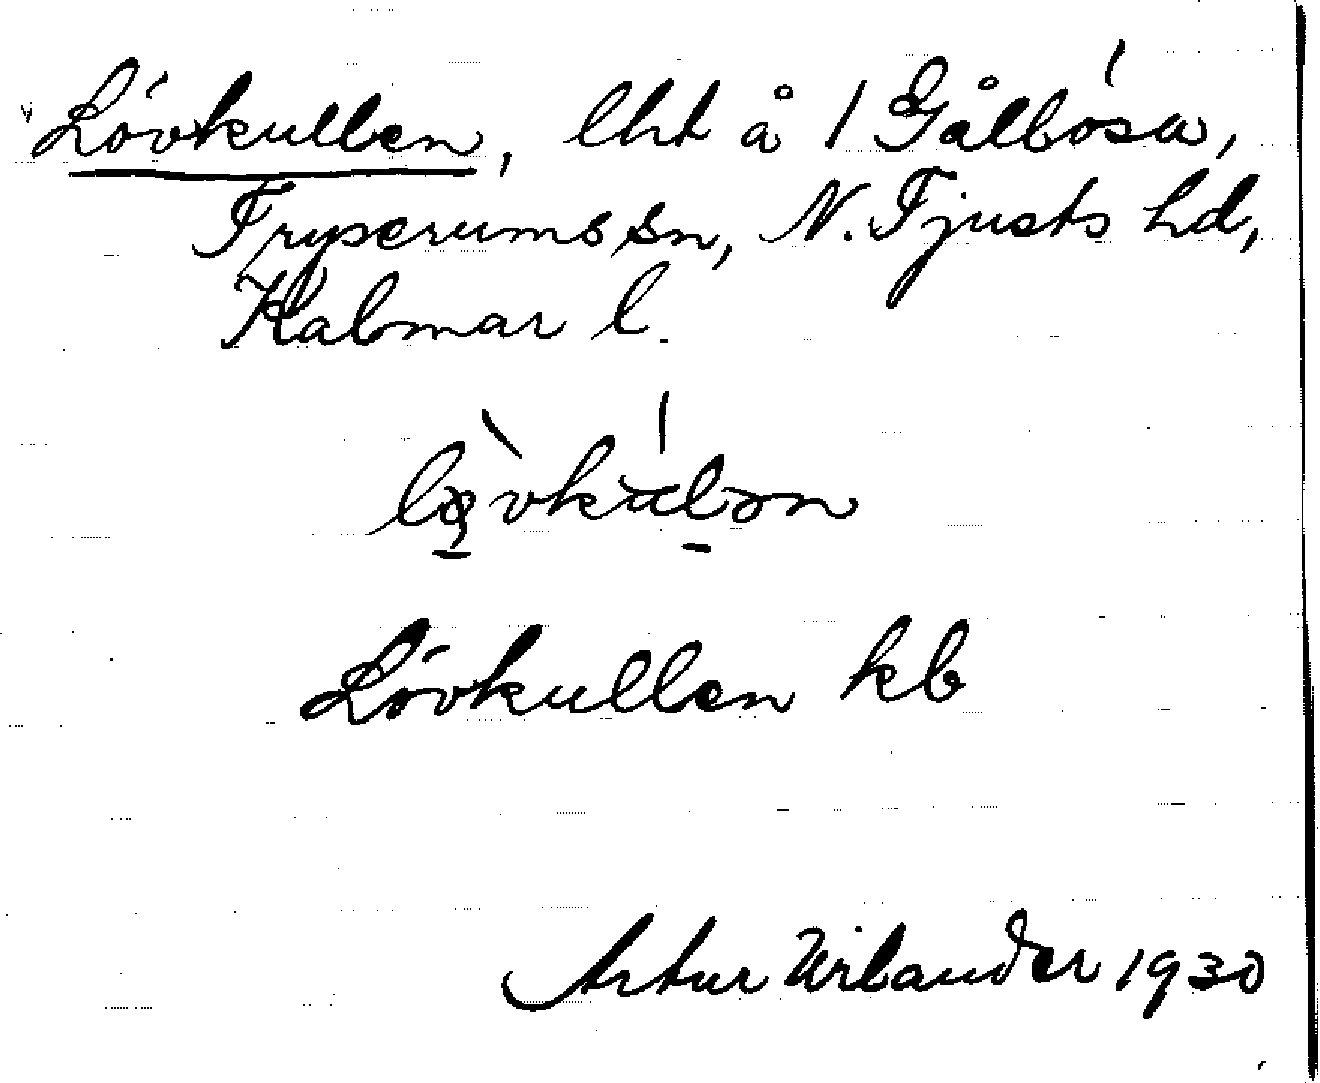 Lövkullen, lht å 1 Gålösa,
Tryserums sn, N. Tjusts hd,
Kalmar l.
Lövkullen kb
Artur Wilander 1930